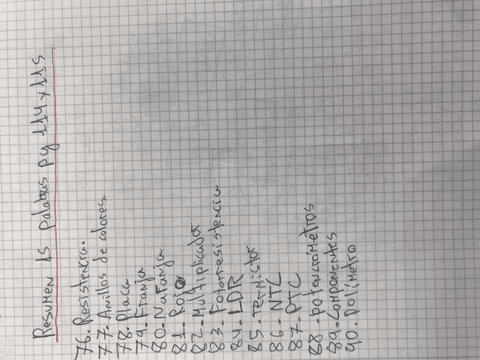 Resumen 15 palabras pg 114 y 115
76. Resistencia.
77. Anillos de colores
78. Placa
79. Franja
80. Naranja
81. Rojo
82. Multiplicador
83. Fotorresistencia
84. LDR
85. termistor
86. NTC
87. PTC
88. potenciómetros
89. Componentes
90. polímetro